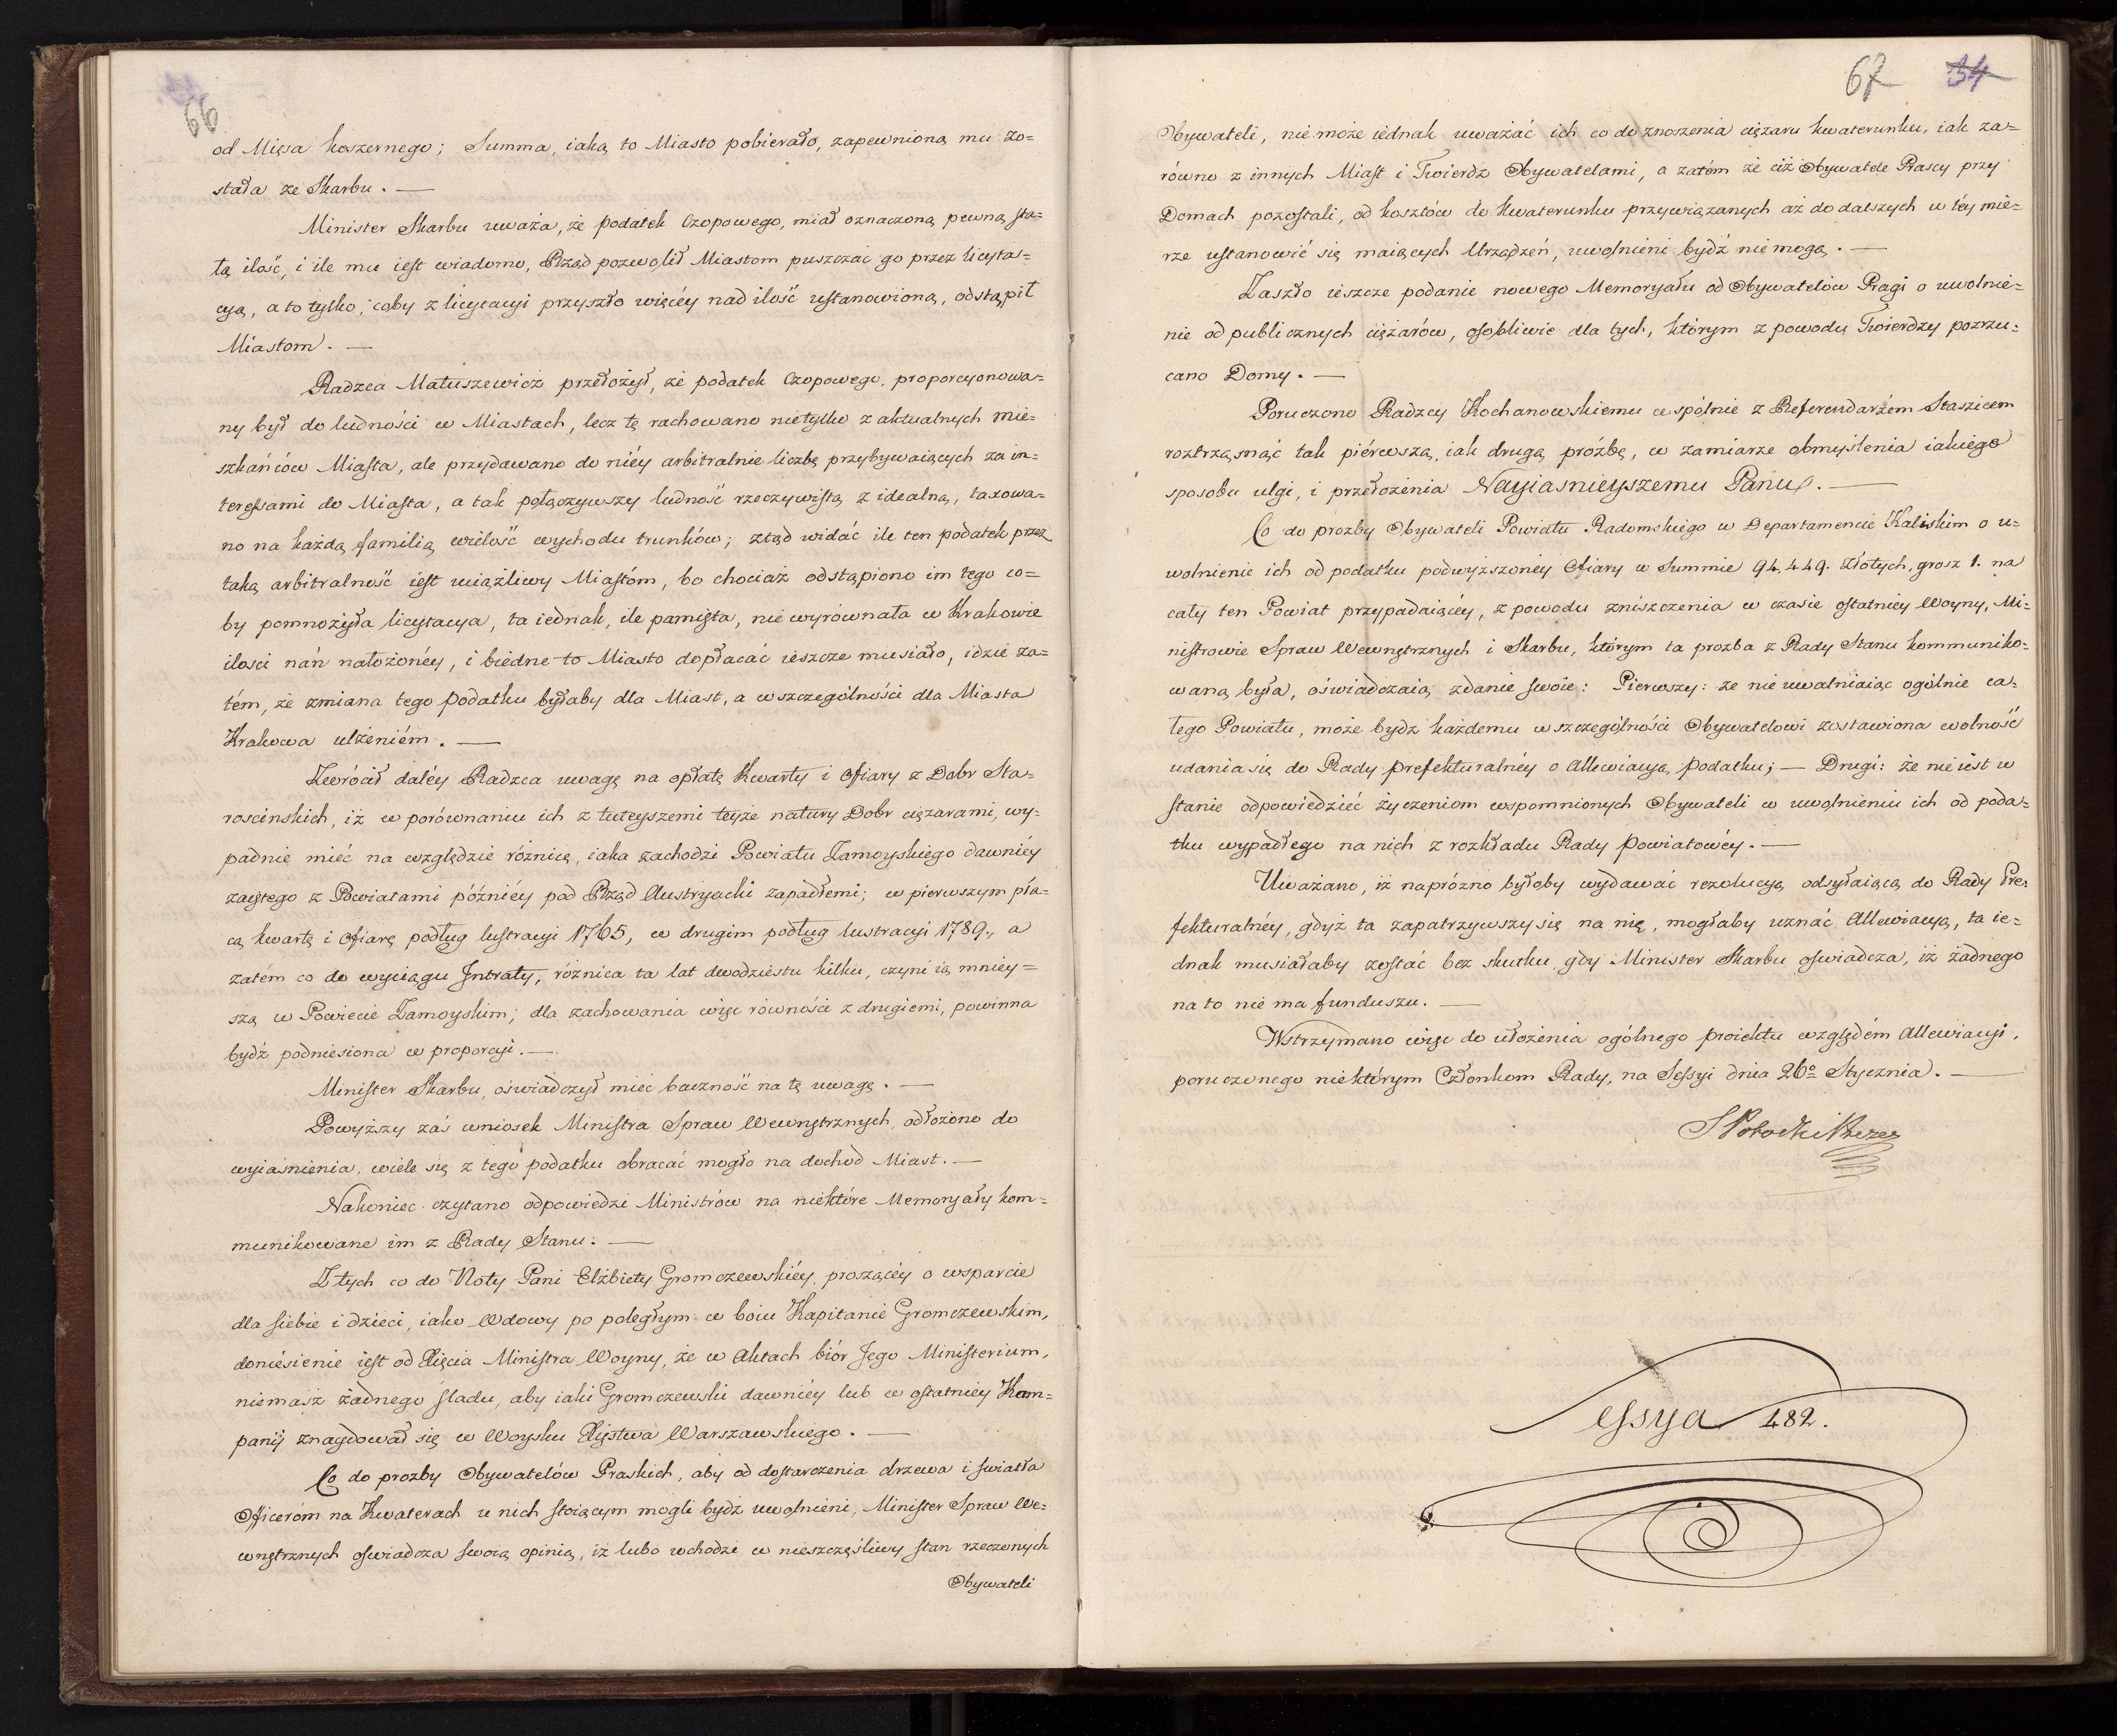 66
od Mięsa koszernego; Summa, iaką to Miasto pobierało, zapewnioną mu zo=
stała ze Skarbu. —
Minister Skarbu uważa, że podatek Czopowego, miał oznaczoną pewną sta=
łą ilość, i ile mu iest wiadomo, Rząd pozwolił Miastom puszczać go przez licyta=
cyą, a to tylko, coby z licytacyi przyszło więcéy nad ilość ustanowioną, odstąpił
Miastom. —
Radzca Matuszewicz przełożył, że podatek Czopowego, proporcyonowa=
ny był do ludności w Miastach, lecz tę rachowano nietylko z aktualnych mie=
szkańców Miasta, ale przydawano do niéy arbitralnie liczbę przybywaiących za in=
teressami do Miasta, a tak połączywszy ludność rzeczywistą z idealną, taxowa=
no na każdą familią wielość wychodu trunków; ztąd widać ile ten podatek przez
taką arbitralność iest uciążliwy Miastóm, bo chociaż odstąpiono im tego co=
by pomnożyła licytacya, ta iednak, ile pamięta, nie wyrównała w Krakowie
ilości nań nałożonéy, i biedne to Miasto dopłacać ieszcze musiało, idzie za=
tém, że zmiana tego podatku byłaby dla Miast, a wszczególności dla Miasta
Krakowa ulżeniém. —
Zwrócił daléy Radzca uwagę na opłatę Kwarty i Ofiary z Dobr Sta=
rościnskich, iż w porównaniu ich z tuteyszemi teyże natury Dobr ciężarami, wy=
padnie mieć na względzie różnicę, iaka zachodzi Powiatu Zamoyskiego dawniéy
zaiętego z Powiatami późniéy pod Rząd Austryacki zapadłemi; w pierwszym pła=
cą kwartę i Ofiarę podług lustracyi 1765, w drugim podług lustracyi 1789., a
zatém co do wyciągu Intraty, różnica ta lat dwodziestu kilku, czyni ią mniey=
szą w Powiecie Zamoyskim; dla zachowania więc równości z drugiemi, powinna
bydź podniesiona w proporcyi. —
Minister Skarbu, oświadczył mieć baczność na tę uwagę. —
Powyższy zaś wniosek Ministra Spraw Wewnętrznych, odłożono do
wyiaśnienia, wiele się z tego podatku obracać mogło na dochod Miast. —
Nakoniec czytano odpowiedzi Ministrów na niektóre Memoryały kom=
munikowane im z Rady Stanu: —
Z tych co do Noty Pani Elżbiety Gromczewskiéy, proszącéy o wsparcie
dla siebie i dzieci, iako Wdowy po poległym w boiu Kapitanie Gromczewskim,
doniesienie iest od Xięcia Ministra Woyny, że w Aktach biór Jego Ministerium,
niemasz żadnego sladu, aby iaki Gromczewski dawniéy lub w ostatniey Kam=
panij znaydował się w Woysku Xięstwa Warszawskiego. —
Co do prozby Obywatelów Praskich, aby od dostarczenia drzewa i swiatła
Officeróm na Kwaterach u nich stoiącym mogli bydź uwolnieni, Minister Spraw We=
wnętrznych oswiadcza swoią opinią, iż lubo wchodzi w nieszczęśliwy stan rzeczonych
Obywateli
67 34
Obywateli, nie może iednak uważać ich co do znoszenia ciężaru kwaterunku, iak za=
równo z innych Miast i Twierdz Obywatelami, a zatém że ciż Obywatele Prascy przy
Domach pozostali, od kosztów do kwaterunku przywiązanych aż do dalszych w téy mie=
rze ustanowić się maiących Urządzeń, uwolnieni bydź niemogą. —
Zaszło ieszcze podanie nowego Memoryału od Obywatelów Pragi o uwolnie=
nie od publicznych ciężarów, osobliwie dla tych, którym z powodu Twierdzy pozrzu=
cano Domy. —
Poruczono Radzcy Kochanowskiemu wspólnie z Referendarzem Staszicem
roztrząsnąć tak piérwszą, iak drugą próźbę, w zamiarze obmyślenia iakiego
sposobu ulgi, i przełożenia Nayiasnieyszemu Panu. —
Co do prozby Obywateli Powiatu Radomskiego w Departamencie Kaliskim o u=
wolnienie ich od podatku podwyższoney Ofiary w Summie 94,449. Złotych, grosz 1. na
cały ten Powiat przypadaiącéy, z powodu zniszczenia w czasie ostatniéy Woyny, Mi=
nistrowie Spraw Wewnętrznych i Skarbu, którym ta prozba z Rady Stanu kommuniko=
waną była, oświadczaią zdanie swoie: Pierwszy: że nie uwalniaiąc ogólnie ca=
łego Powiatu, może bydź każdemu w szczególności Obywatelowi zostawiona wolność
udania się do Rady prefekturalnéy o Allewiacyą podatku; — Drugi: że nie iest w
stanie odpowiedzieć życzeniom wspomnionych Obywateli w uwolnieniu ich od poda=
tku wypadłego na nich z rozkładu Rady Powiatowéy. —
Uważano, iż napróżno byłoby wydawać rezolucyą odsyłaiącą do Rady Pre=
fekturalnéy, gdyż ta zapatrzywszy się na nię, mogłaby uznać Allewiacyą, ta ie=
dnak musiałaby zostać bez skutku, gdy Minister Skarbu oswiadcza, iż żadnego
na to nie ma funduszu. —
Wstrzymano więc do ułożenia ogólnego proiektu względém Allewiacyi,
poruczonego niektórym Członkom Rady, na Sessyi dnia 26º Stycznia. —
S Potocki Prezes
Sessya 482.